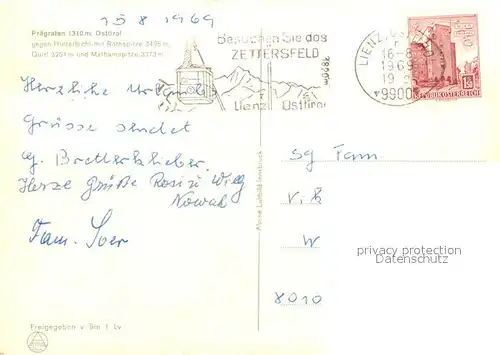 15 8 1969
Prägraten 1310 m, Osttirol
gegen Hinterbichl mit Rötspitze 3495 m,
Quirl 3251 m und Malhamspitze 3373 m
Besuchen Sie das
ZETTERSFELD
2200m
Lienz Osttirol
LIENZ
16-8
1969
19
9900
REPUBLIK ÖSTERREICH
Herzliche Urlaubs
Grüsse sendet
Herze Grüße Rosi u Willy
Nowak
Fam.
Alpine Luftbild Innsbruck
Fam
W
8010
privacy protection
DANARDI.COM
Freigegeben v. Bm f. Lv